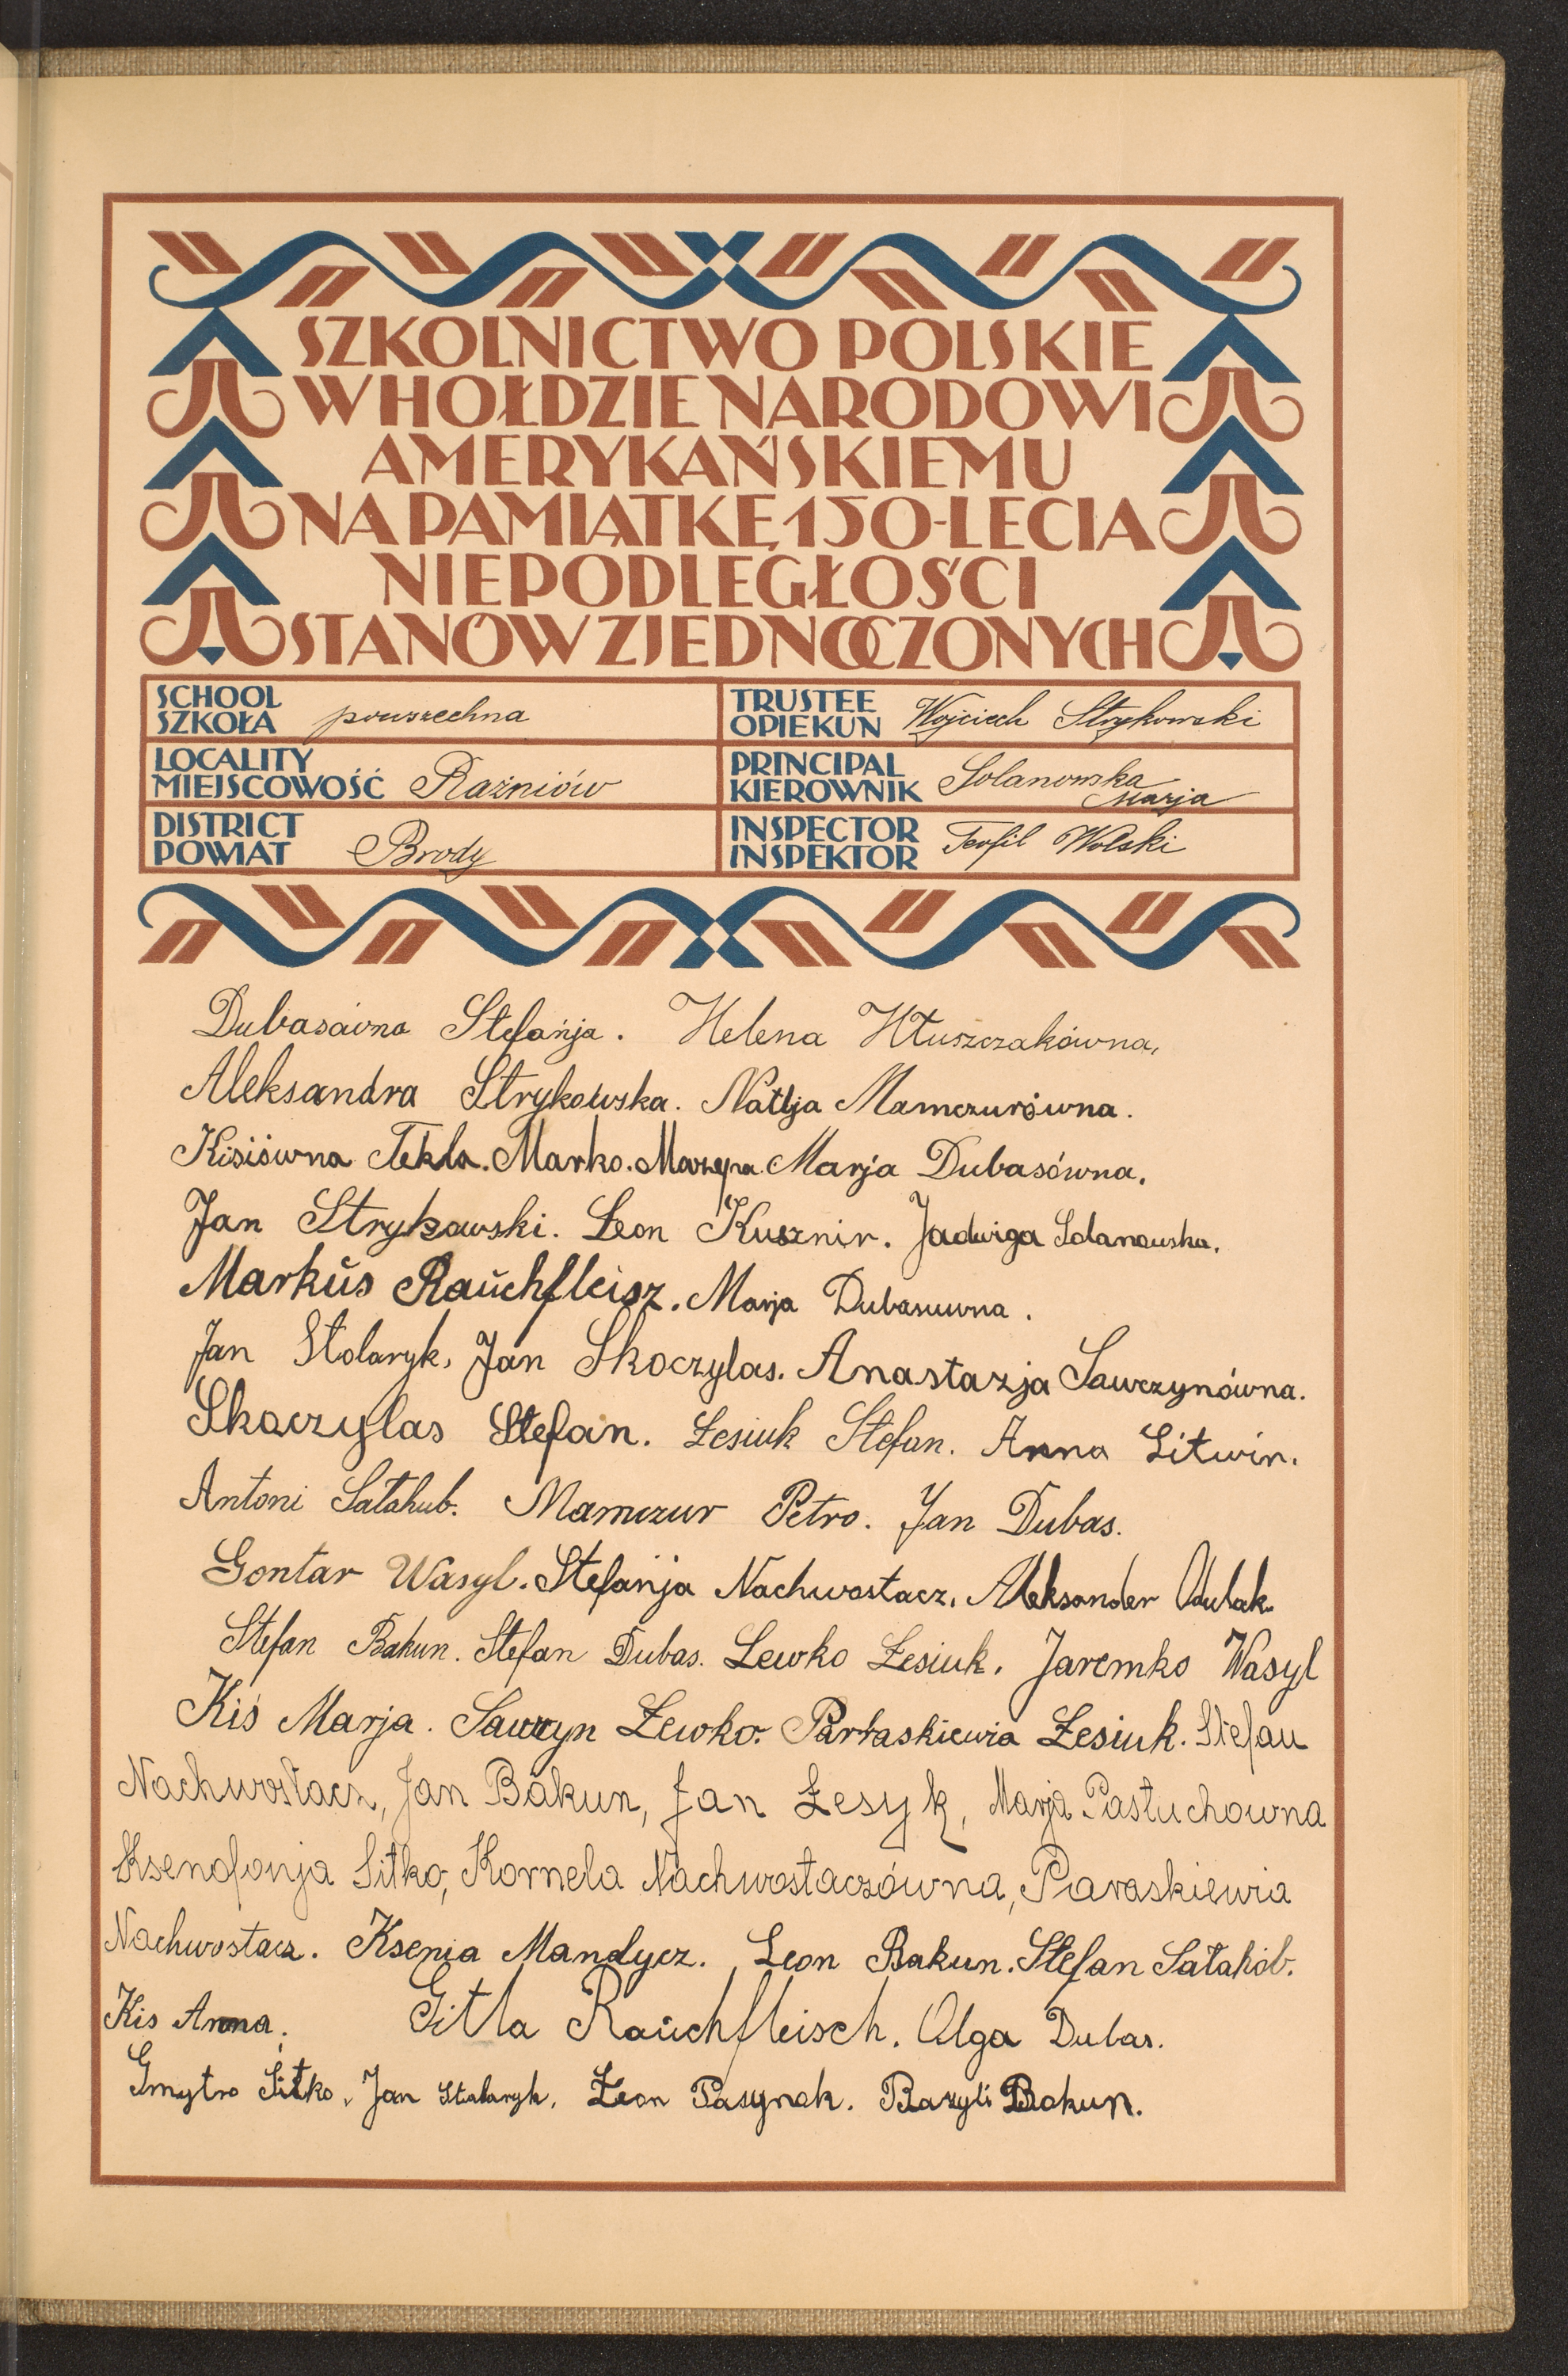 SZKOLNICTWO POLSKIE
W HOŁDZIE NARODOWI
AMERYKAŃSKIEMU
NA PAMIĄTKĘ 150-LECIA
NIEPODLEGŁOŚCI
STANÓW ZJEDNOCZONYCH
SCHOOL
SZKOŁA powszechna
TRUSTEE
OPIEKUN Wojciech Strykowski
LOCALITY
MIEJSCOWOŚĆ Rażniów
PRINCIPAL
KIEROWNIK Solanowska
Marja
DISTRICT
POWIAT Brody
INSPECTOR
INSPEKTOR Teofil Wolski
Dubasówna Stefanja. Helena Hłuszczakówna,
Aleksandra Strykowska. Natlja Mamczurówna.
Kisiówna Tekla. Marko. Mazepa. Marja Dubasówna.
Jan Strykowski. Leon Kusznir. Jadwiga Solanowska.
Markŭs Raŭchfleisz. Marja Dubasuwna.
Jan Stolaryk, Jan Skoczylas. Anastazja Sawczynówna.
Skoczylas Stefan. Łesiuk Stefan. Anna Litwin.
Antoni Sałahub. Mamczur Petro. Jan Dubas.
Gontar Wasyl. Stefanja Nachwostacz. Aleksander Odulak.
Stefan Bakun. Stefan Dubas. Lewko Łesiuk. Jaremko Wasyl
Kiś Marja. Sawczyn Łewko. Parłaskiewia Łesiuk. Stefan
Nachwostacz, Jan Bakun, Jan Łesyk, Marja Pastuchowna
Ksenofonja Sitko, Kornela Nachwostaczówna, Paraskiewia
Nachwostacz. Ksenia Mandycz. Leon Bakun. Stefan Sałahób.
Kis Anna. Gitla Raŭchfleisch. Olga Dubas.
Gmytro Sitko. Jan Stolaryk. Łeon Pasynok. Bazyli Bakun.